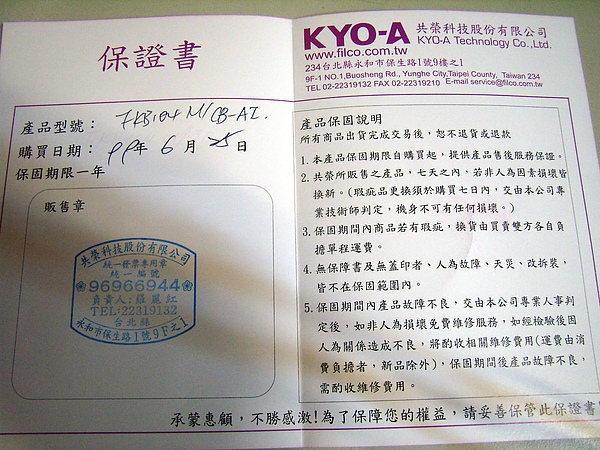 保證書
產品型號： FKB104M/CB-AI.
購買日期： 99年 6 月 25日
保固期限一年
販售章
共榮科技股份有限公司
統一發票專用章
統一編號
96966944
負責人：羅麗紅
TEL:22319132
台北縣
永和市保生路1號9F之1
KYO-A 共榮科技股份有限公司
KYO-A Technology Co.,Ltd.
www.filco.com.tw
234台北縣永和市保生路1號9樓之1
9F-1 NO.1,Buosheng Rd., Yunghe City,Taipei County, Taiwan 234
TEL 02-22319132 FAX 02-22319210 E-mail service@filco.com.tw
產品保固說明
所有商品出貨完成交易後，恕不退貨或退款
1. 本產品保固期限自購買起，提供產品售後服務保證。
2. 共榮所販售之產品，七天之內，若非人為因素損壞皆
換新。(瑕疵品更換須於購買七日內，交由本公司專
業技術師判定，機身不可有任何損壞。)
3. 保固期間內商品若有瑕疵，換貨由買賣雙方各自負
擔單程運費。
4. 無保障書及無蓋印者、人為故障、天災、改拆裝，
皆不在保固範圍內。
5. 保固期間內產品故障不良，交由本公司專業人事判
定後，如非人為損壞免費維修服務，如經檢驗後因
人為關係造成不良，將酌收相關維修費用(運費由消
費負擔者，新品除外)，保固期間後產品故障不良，
需酌收維修費用。
承蒙惠顧，不勝感激!為了保障您的權益，請妥善保管此保證書